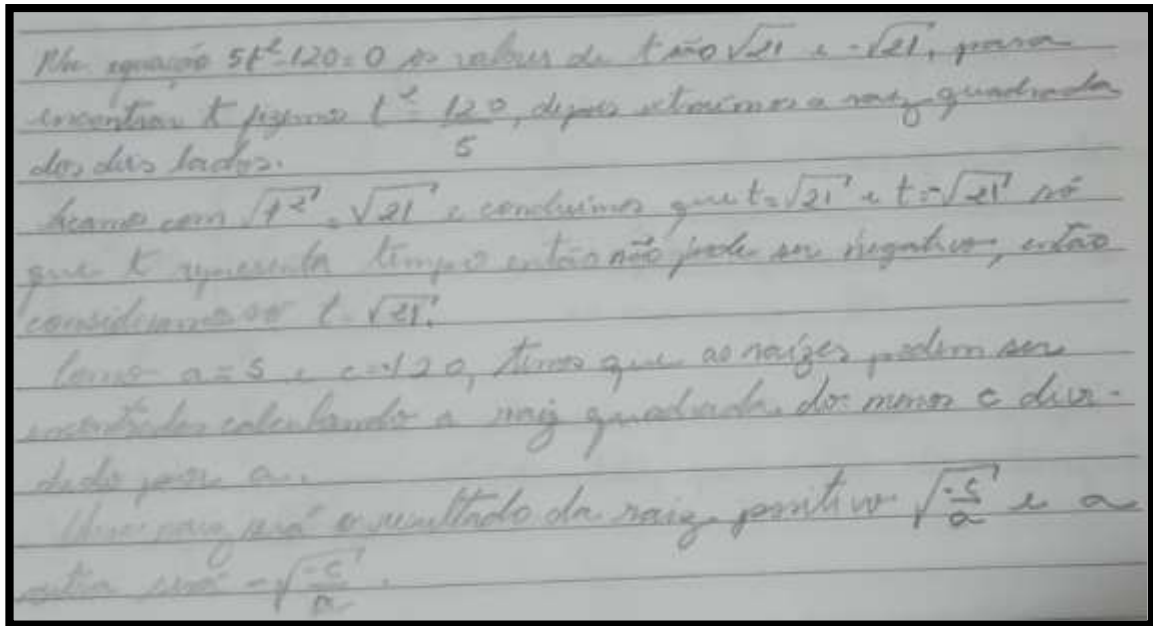 Na equação 5t²-120=0 os valores de t são √21 e -√21, para
encontrar t fizemos t² = 120/5, depois extraímos a raiz quadrada
dos dois lados.
ficamos com √t² = √21 e concluímos que t=√21 e t=-√21 só
que t representa tempo então não pode ser negativo, então
consideramos só t=√21.
Como a=5 e c=-120, temos que as raízes podem ser
encontradas calculando a raiz quadrada do: menos c divi-
dido por a.
Uma raiz será o resultado da raiz positivo √-c/a e a
outra será -√-c/a.